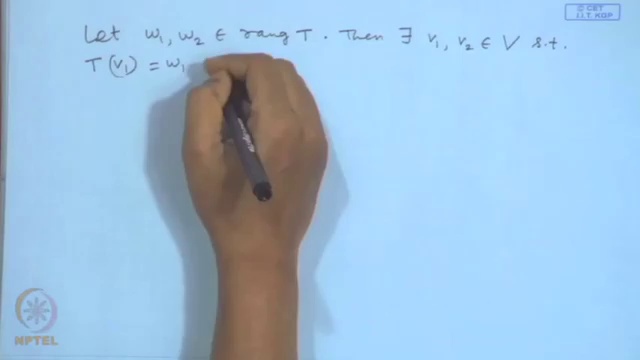 © CET
I.I.T. KGP
Let w₁, w₂ ∈ rang T. Then ∃ v₁, v₂ ∈ V s.t.
T(v₁) = w₁
NPTEL